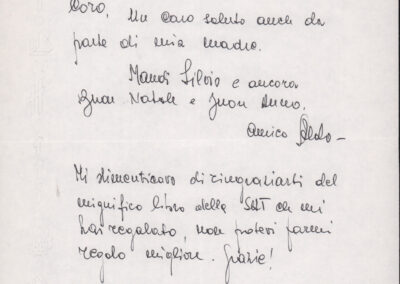 Coro. Un Caro saluto anche da
parte di mia madre.
Mandi Silvio e ancora
Buon Natale e Buon Anno.
Amico Aldo –
Mi dimenticavo di ringraziarti del
magnifico libro della SAT che mi
hai regalato, non potevi farmi
regalo migliore. Grazie!